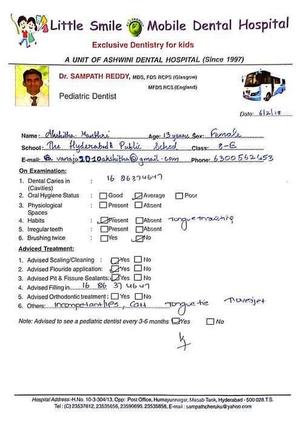 Little Smile Mobile Dental Hospital
Exclusive Dentistry for kids
A UNIT OF ASHWINI DENTAL HOSPITAL (Since 1997)
Dr. SAMPATH REDDY, MDS, FDS RCPS (Glasgow)
MFDS RCS (England)
Pediatric Dentist
Date: 6/2/18
Name: Akshitha Age: 13 years Sex: Female
School: The Hyderabad Public School Class: 8-G
E-mail: vanaja2010akshitha@gmail.com Phone: 6300562453
On Examination:
1. Dental Caries in (Cavities) : 16 86374647
2. Oral Hygiene Status : Good Average Poor
3. Physiological Spaces : Present Absent
4. Habits : Present Absent
5. Irregular teeth : Present Absent
6. Brushing twice : Yes No
Adviced Treatment:
1. Advised Scaling/Cleaning : Yes No
2. Advised Flouridio application: Yes No
3. Advised Pit & Fissure Sealants: Yes No
4. Advised Filling in 16 86 37 4647
5. Advised Orthodontic treatment : Yes No
6. Others:
Note: Advised to see a pediatric dentist every 3-6 months Yes No
Hospital Address-H.No. 10-3-304/13, Opp: Post Office, Humayunnagar, Masab Tank, Hyderabad - 500 028.T.S.
Tel: (C) 23537612, 23535656, 23590695, 23535858, E-mail : sampathcheruku@yahoo.com